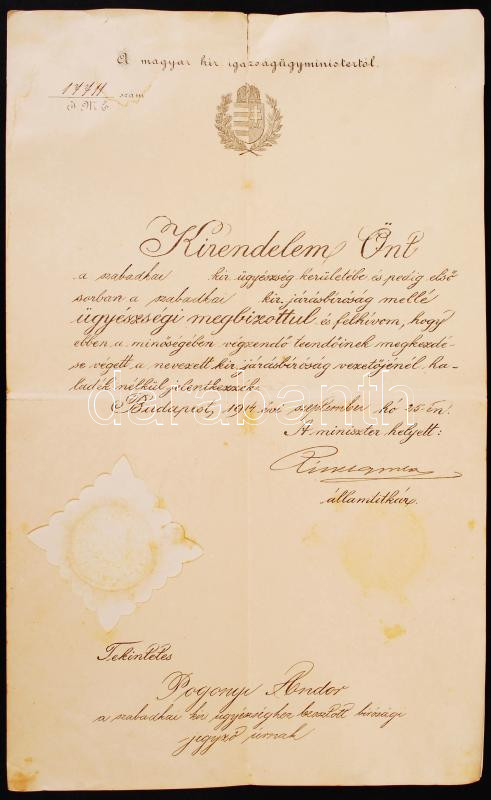 A magyar kir igazságügyministertől.
1774 szám
I. M. E.
Kirendelem Önt
a szabadkai kir. ügyészség kerületébe és pedig első
sorban a szabadkai kir. járásbíróság mellé
ügyészségi megbízottul és felhívom, hogy
ebben a minőségében végzendő teendőinek megkezdé-
se végett a nevezett kir. járásbíróság vezetőjénél ha-
ladék nélkül jelentkezzék.
Budapest, 1914 évi szeptember hó 25-én.
darabanth
A miniszter helyett:
államtitkár.
Tekintetes
Pogonyi Andor
a szabadkai kir ügyészséghez beosztott bírósági
jegyző úrnak